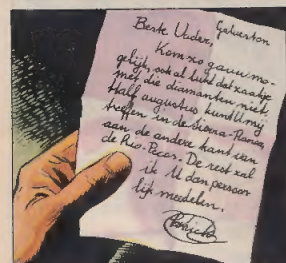 Galveston
Beste Vader,
Kom zo gauw mo-
gelijk, ook al luidt dat zaakje
met die diamanten niet.
Half augustus kund U mij
treffen in de Sierra-Ranca,
aan de andere kant van
de Rio-Pecos. De rest zal
ik U dan persoon
lijk meedelen.